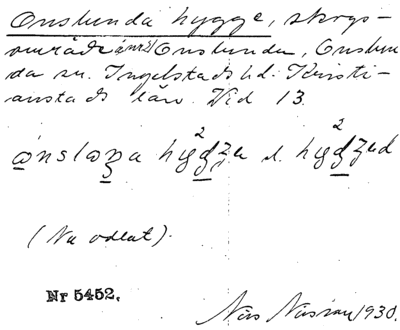 Onslunda hygge, skogs-
område invid Onslunda, Onslun-
da sn. Ingelstads hd. Kristi-
anstads län. Vid 13.
(Nu odlat).
Nr 5452.
Nils Nilsson 1930.